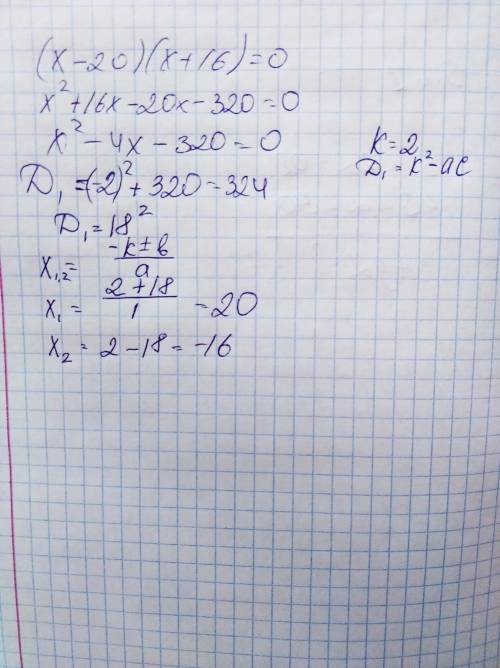 (x-20)(x+16)=0
x²+16x-20x-320=0
x²-4x-320=0
D₁=(-2)²+320=324
D₁=18²
x₁,₂= -k±b / a
x₁= 2+18 / 1 =20
x₂=2-18=-16
k=2
D₁=k²-ac